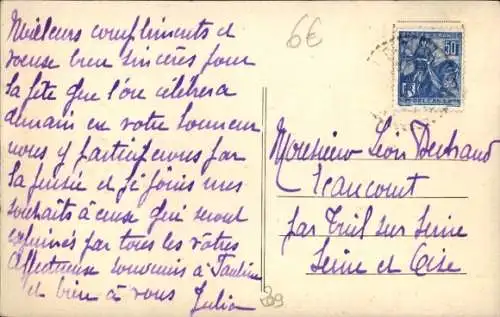 Meilleurs compliments et
voeux bien sincères pour
la fête que l'on célèbrera
demain en votre honneur
nous y participerons par
la pensée et je joins mes
souhaits à ceux qui seront
exprimés par tous les vôtres
Affectueux souvenirs à Pauline
et bien à vous Julia
6€
50
F.
ORLEANS
Monsieur Léon Bertrand
par Triel sur Seine
Seine et Oise